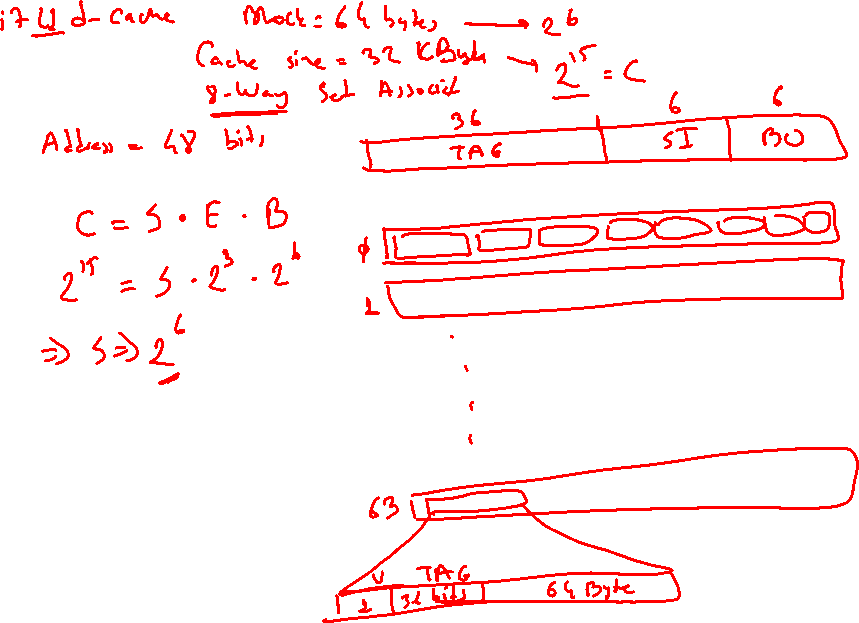 i7 L1 d-cache Block = 64 bytes → 2^6
Cache size = 32 KByte → 2^15 = C
8-way Set Associat
Address = 48 bits
36 6 6
TAG SI BO
C = S · E · B
2^15 = S · 2^3 · 2^6
⇒ S ⇒ 2^6
0
1
63
V TAG
1 36 bits 64 Byte